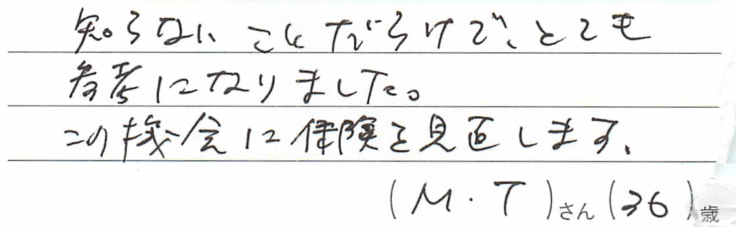 知らないことだらけで、とても
参考になりました。
この機会に保険を見直します。
(M・T)さん(36)歳